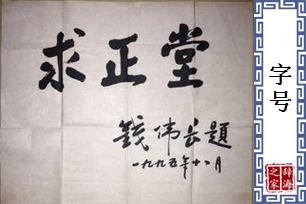 求正堂
錢偉長題
一九九五年十八月
字号
辞海之家